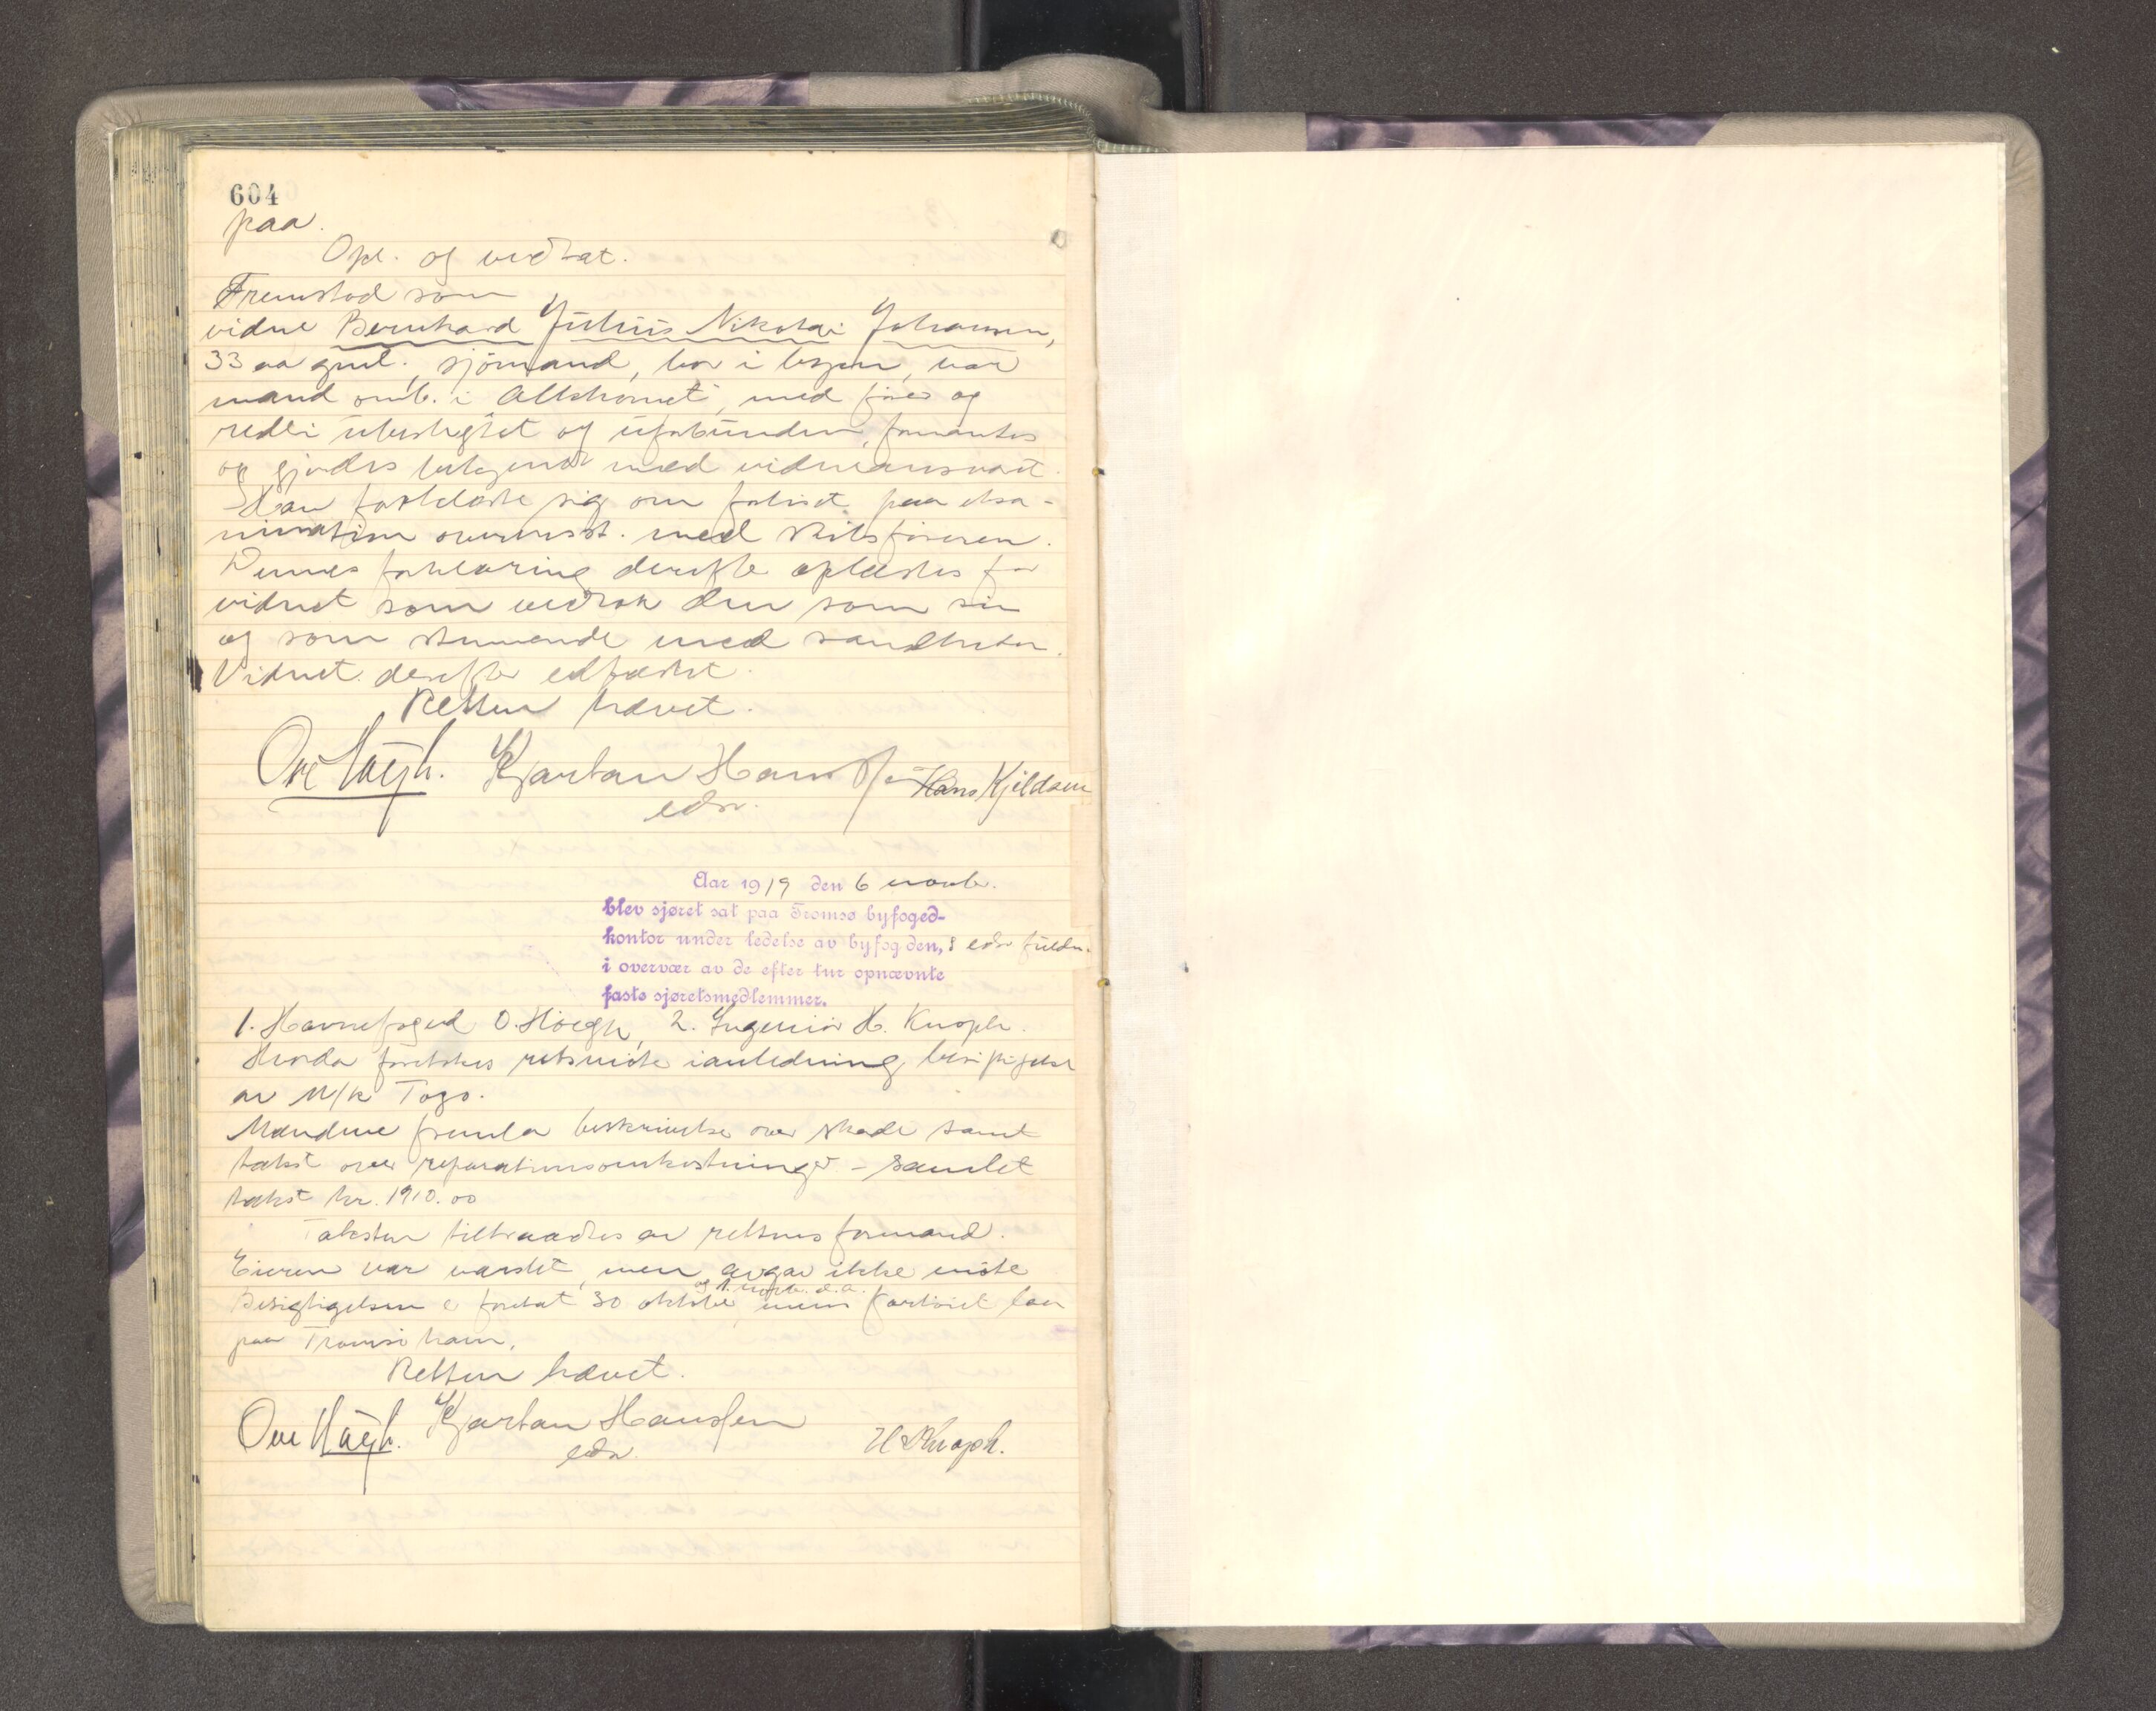 604
paa.
Opl. og vedtat.
Fremstod som
vidne Bernhard Julius Nikolai Johansen,
33 aa gml., sjömand, bor i byen, var
mand omb. i Altshomet, med fører og
rederi ubeslegtet og uforbunden, formantes
og gjordes bekjendt med vidneansvaret.
Han forklarte sig om forliset paa eksa-
mination overensst. med skibsføreren.
Dennes forklaring derefte oplæstes for
vidnet som vedtok den som sin
og som stemmende med sandheten.
Vidnet derefter edfæstet.
Retten hævet.
Ove Høegh. Kjartan Hanssen Hans Kjeldsen
edsv.
Aar 1919 den 6 novbr.
blev sjøret sat paa Tromsø byfoged-
kontor under ledelse av byfogden, edsv fuldm.
i overvær av de efter tur opnævnte
faste sjøretsmedlemmer.
1. Havnefoged O. Høegh, 2. Ingeniør H. Knoph.
Hvorda foretokes retsmøte i anledning besigtigelse
av M/k Togo.
Mændene fremla beskrivelse over skade samt
takst over reparationsomkostninger - samlet
takst kr. 1910.00
Taksten tiltraadtes av rettens formand.
Eieren var varslet, men avgav ikke møte
og 1. novbr. d.a.
Besigtigelsen e foretat 30 oktober mens fartøiet laa
paa Tromsø havn.
Retten hævet.
Ove Høegh. Kjartan Hanssen H Knoph.
edsv.